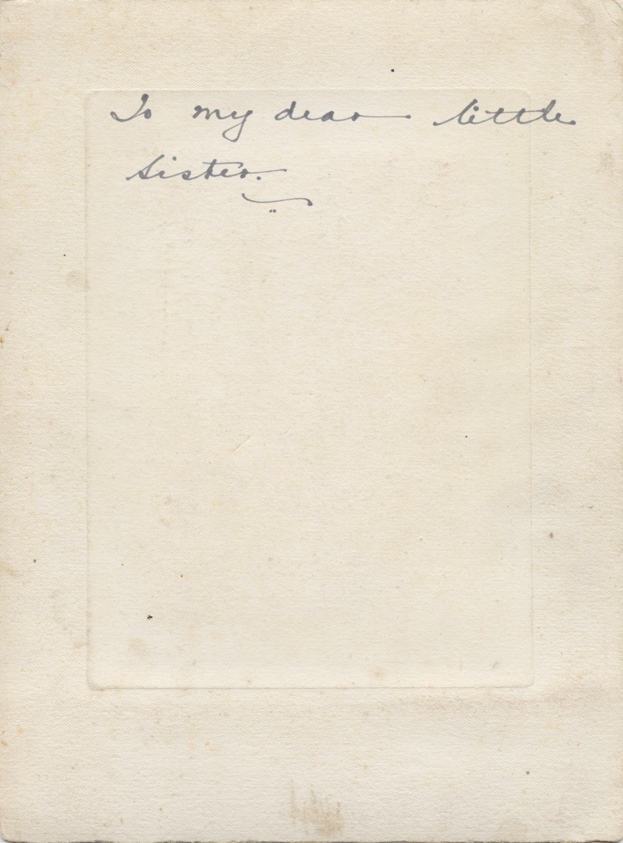 To my dear little
sister.